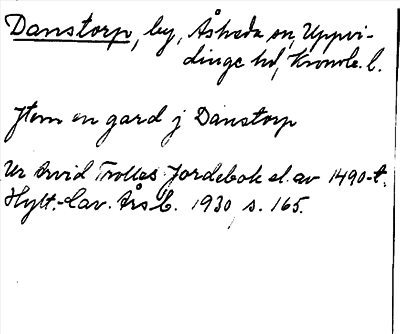 Danstorp, by, Åsheda sn, Uppvi-
dinge hd, Kronob. l.
Jtem en gard j Danstorp
Ur Arvid Trolles Jordebok sl. av 1490-t.
Hylt.-Cav. Årsb. 1930, s. 165.